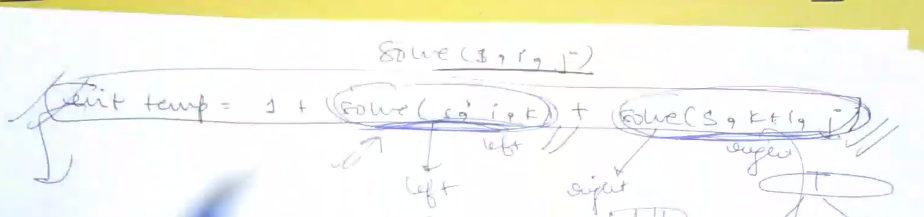 solve(s, i, j)
int temp = 1 + solve(s, i, k) + solve(s, k+1, j)
left right
left right